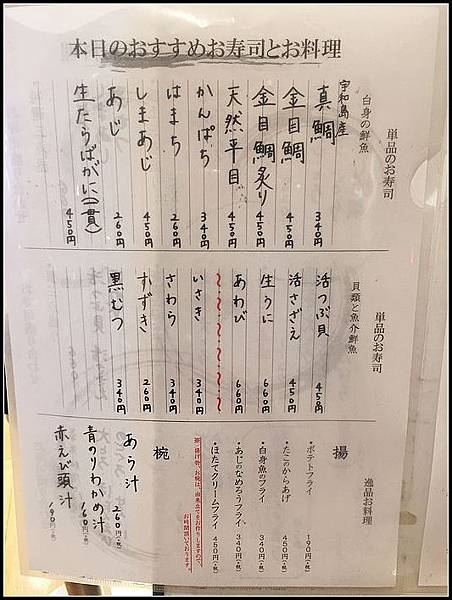 本日のおすすめお寿司とお料理
単品のお寿司
白身の鮮魚
宇和島産
真鯛 340円
金目鯛 450円
金目鯛炙り 450円
天然平目 450円
かんぱち 340円
はまち 260円
しまあじ 450円
あじ 260円
生たらばがに(一貫) 450円
単品のお寿司
貝類と魚介鮮魚
活つぶ貝 450円
活さざえ 450円
生うに 660円
あわび 660円
いさき 340円
さわら 340円
すずき 260円
黒むつ 340円
逸品お料理
揚
・ポテトフライ 190円(+税)
・たこのからあげ 450円(+税)
・白身魚のフライ 340円(+税)
・あじのなめろうフライ 340円(+税)
・ほたてクリームフライ 450円(+税)
お時間頂いております。
椀
あら汁 260円(+税)
青のりわかめ汁 160円(+税)
赤えび頭汁 190円(+税)